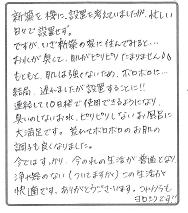 新築を機に、設置を考えていましたが、忙しい
日々で設置せず。
ですが、いざ新築の家に住んでみると…
お水が臭くて、肌がピリピリたまりません
もともと、肌は強くないため、ボロボロに…
結局、遅れましたが設置することに!!
連結して10日程で使用できるようになり、
臭いのしないお水、ピリピリしないお風呂に
大満足です。荒れてボロボロのお肌の
調子も良くなりました。
今ではすっかり、今のれの生活が普通となり
浄水器のない(ついてますが)この生活が
快適です。ありがとうございます。これからも
ヨロシクです!!